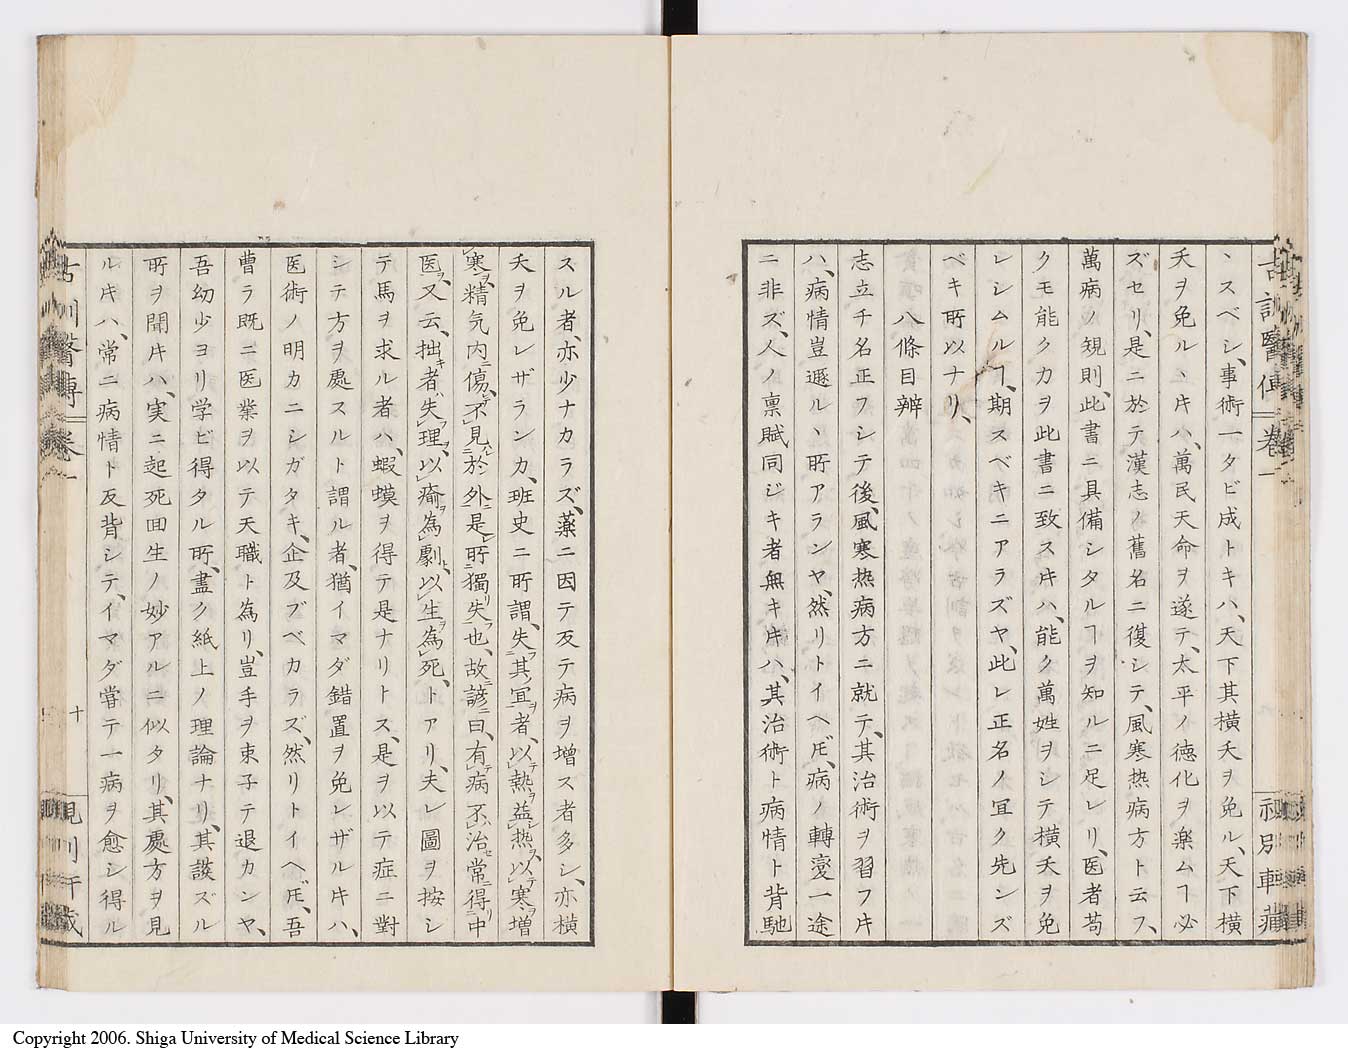 古訓醫傳 卷一
、スベシ、事術一タビ成トキハ、天下其横夭ヲ免ル、天下横
夭ヲ免ルヽヰハ、萬民天命ヲ遂テ、太平ノ徳化ヲ楽ムヿ必
ズセリ、是ニ於テ漢志ノ舊名ニ復シテ、風寒热病方ト云フ、
萬病ノ規則、此書ニ具備シタルヿヲ知ルニ足レリ、医者苟
クモ能ク力ヲ此書ニ致スヰハ、能ク萬姓ヲシテ横夭ヲ免
レシムルヿ、期スベキニアラズヤ、此レ正名ノ冝ク先ンズ
ベキ所以ナリ、
八條目辨
志立チ名正フシテ後、風寒热病方ニ就テ、其治術ヲ習フヰ
ハ、病情豈遯ルヽ所アランヤ、然リトイヘ𪜈、病ノ轉変一途
ニ非ズ、人ノ禀賦同ジキ者無キヰハ、其治術ト病情ト背馳
スル者、亦少ナカラズ、薬ニ因テ反テ病ヲ増ス者多シ、亦横
夭ヲ免レザランカ、班史ニ所謂、失其冝者、以熱益熱以寒増
寒精気内傷、不見於外、是所獨失也、故諺曰、有病不治常得中
医、又云、拙者失理、以瘉為劇、以生為死、トアリ、夫レ圖ヲ按シ
テ馬ヲ求ル者ハ、蝦蟆ヲ得テ是ナリトス、是ヲ以テ症ニ對
シテ方ヲ處スルト謂ル者、猶イマダ錯置ヲ免レザルヰハ、
医術ノ明カニシガタキ、企及ブベカラズ、然リトイヘ𪜈、吾
曹ラ既ニ医業ヲ以テ天職ト為リ、豈手ヲ束子テ退カンヤ、
吾幼少ヨリ学ビ得タル所、盡ク紙上ノ理論ナリ、其談ズル
所ヲ聞ヰハ、実ニ起死回生ノ妙アルニ似タリ、其處方ヲ見
ルヰハ、常ニ病情ト反背シテ、イマダ甞テ一病ヲ愈シ得ル
古訓醫傳 卷一 十
Copyright 2006. Shiga University of Medical Science Library